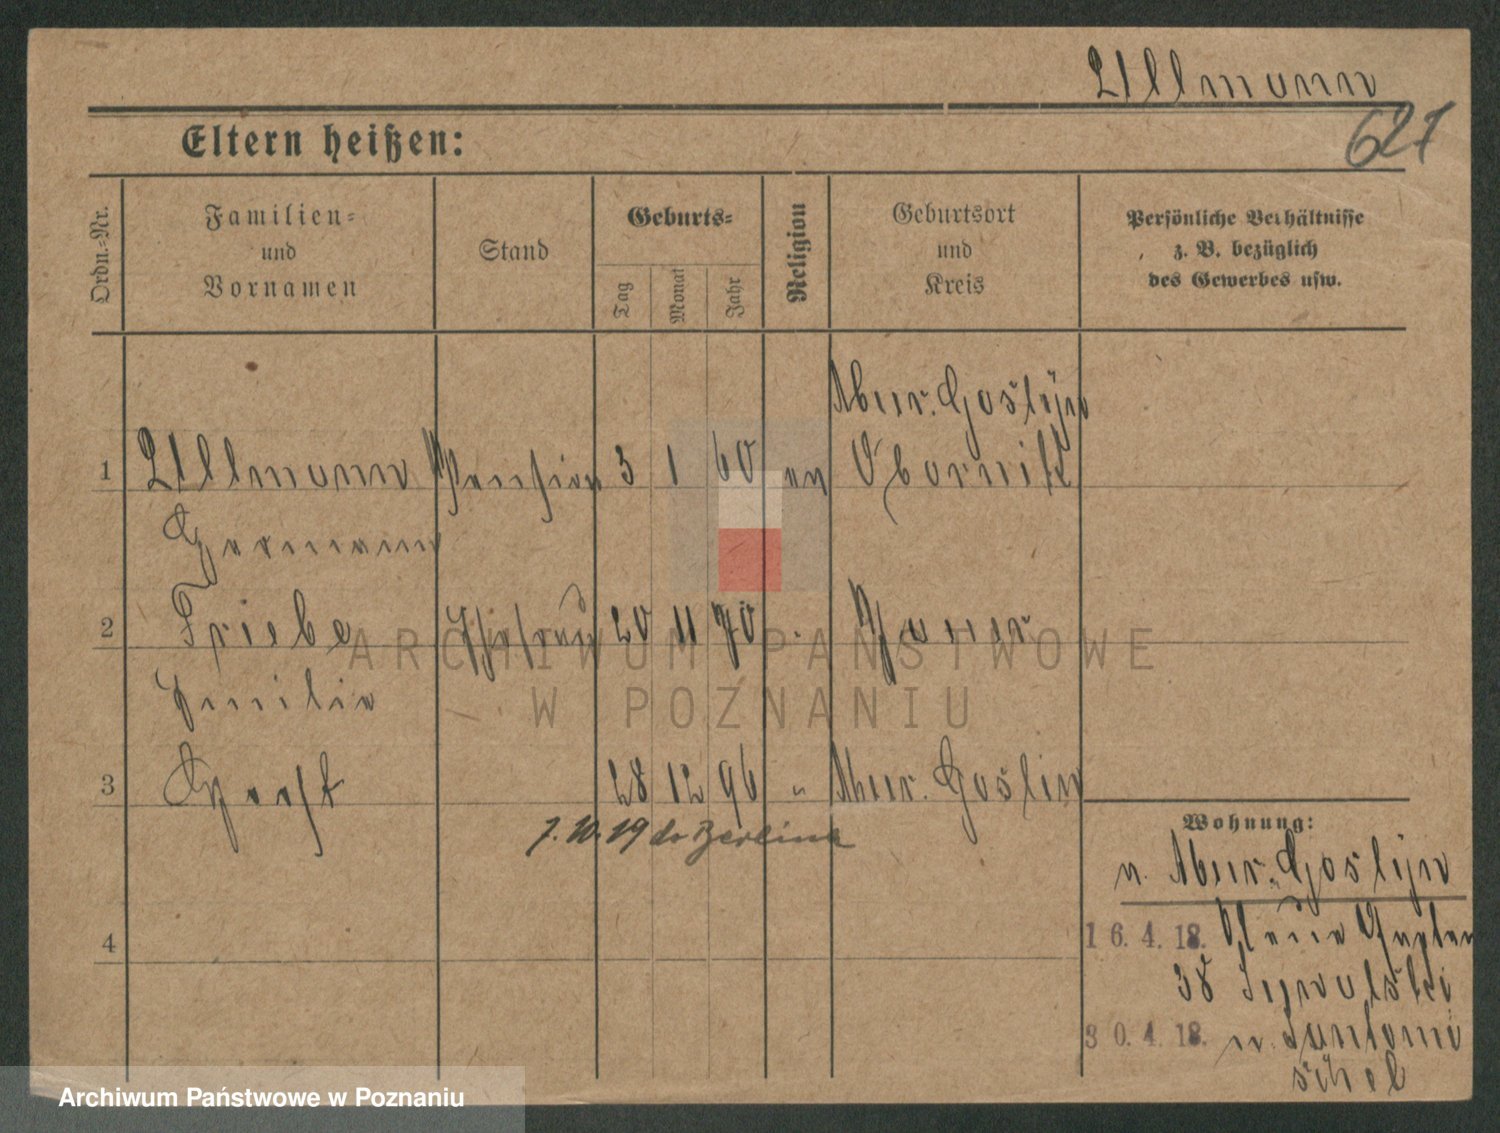 Ullmann
627
Eltern heißen:
Ordn.-Nr.
Familien-
und
Vornamen
Stand
Geburts-
Tag
Monat
Jahr
Religion
Geburtsort
und
Kreis
Persönliche Verhältnisse
z. B. bezüglich
des Gewerbes usw.
Mur. Goslin
1 Ullmann 3 1 60 ev Obornik
Hermann
2 Triebe Ehefrau 20 11 70 "
Emilie
3 Horst 28 12 96 " Mur. Goslin
7. 10. 19 do Berlina
4
Wohnung:
n. Mur. Goslin
16. 4. 18.
38
30. 4. 18. n.
ARCHIWUM PAŃSTWOWE
W POZNANIU
Archiwum Państwowe w Poznaniu